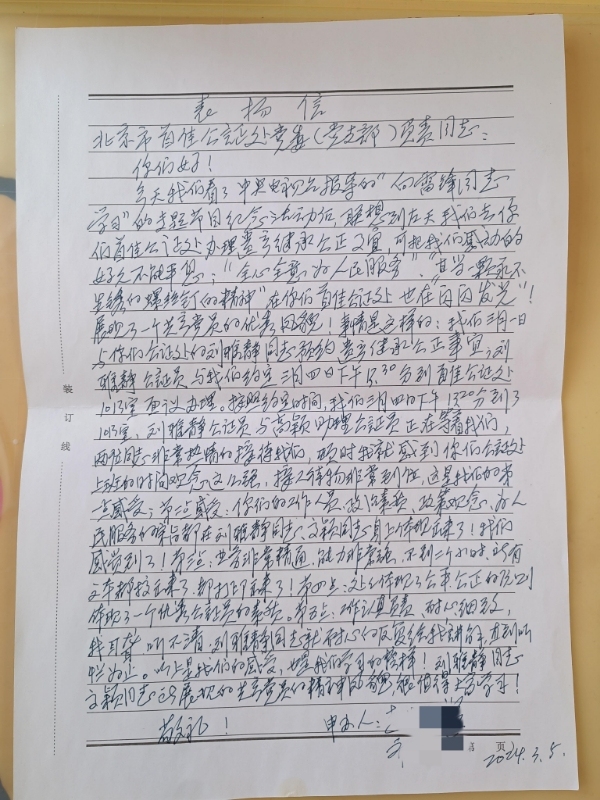 表扬信
北京市首佳公证处党委(党支部)负责同志:
你们好!
今天我们看了中央电视台报导的"向雷锋同志
学习"的专题节目纪念活动后,联想到昨天我们去你
们首佳公证处办理遗产继承公正文宜,可把我们感动的
好久不能平息;"全心全意为人民服务"."甘当一颗永不
生锈的螺丝钉的精神"在你们首佳公证处也在"闪闪发光"!
展现了一个共产党员的优秀风貌!事情是这样的:我们三月一日
与你们公证处的刘雅静同志预约遗产继承公正事宜,刘
雅静公证员与我们约定三月四日下午13:30分到首佳公证处
1013室面议办理。按照约定时间,我们三月四日下午1320分到了
1013室,刘雅静公证员与文颖助理公证员正在等着我们,
两位同志非常热情的接待我们,顿时我就感到你们公证处
上班的时间观念这么强,接人待物非常到位,这是我们的第
一点感受;第二点感受:你们的工作人员,政治素质,政策观念,为人
民服务的宗旨都在刘雅静同志、文颖同志身上体现出来了!我们
感觉到了!第三点,业务非常精通,能力非常强,不到二个小时,所有
文本都校出来了,都打印出来了!第四点:处处体现了公事公正的原则
体现了一个优秀公证员的素质。第五点:工作认真负责,耐心细致,
我耳聋,听不清,刘雅静同志就耐心的反复给我讲解,直到听
懂为止。以上是我们的感受,也是我们学习的榜样!刘雅静同志
文颖同志所展现的共产党员的精神风貌很值得大家学习!
敬礼! 申办人:
页 2024.3.5.
装订线